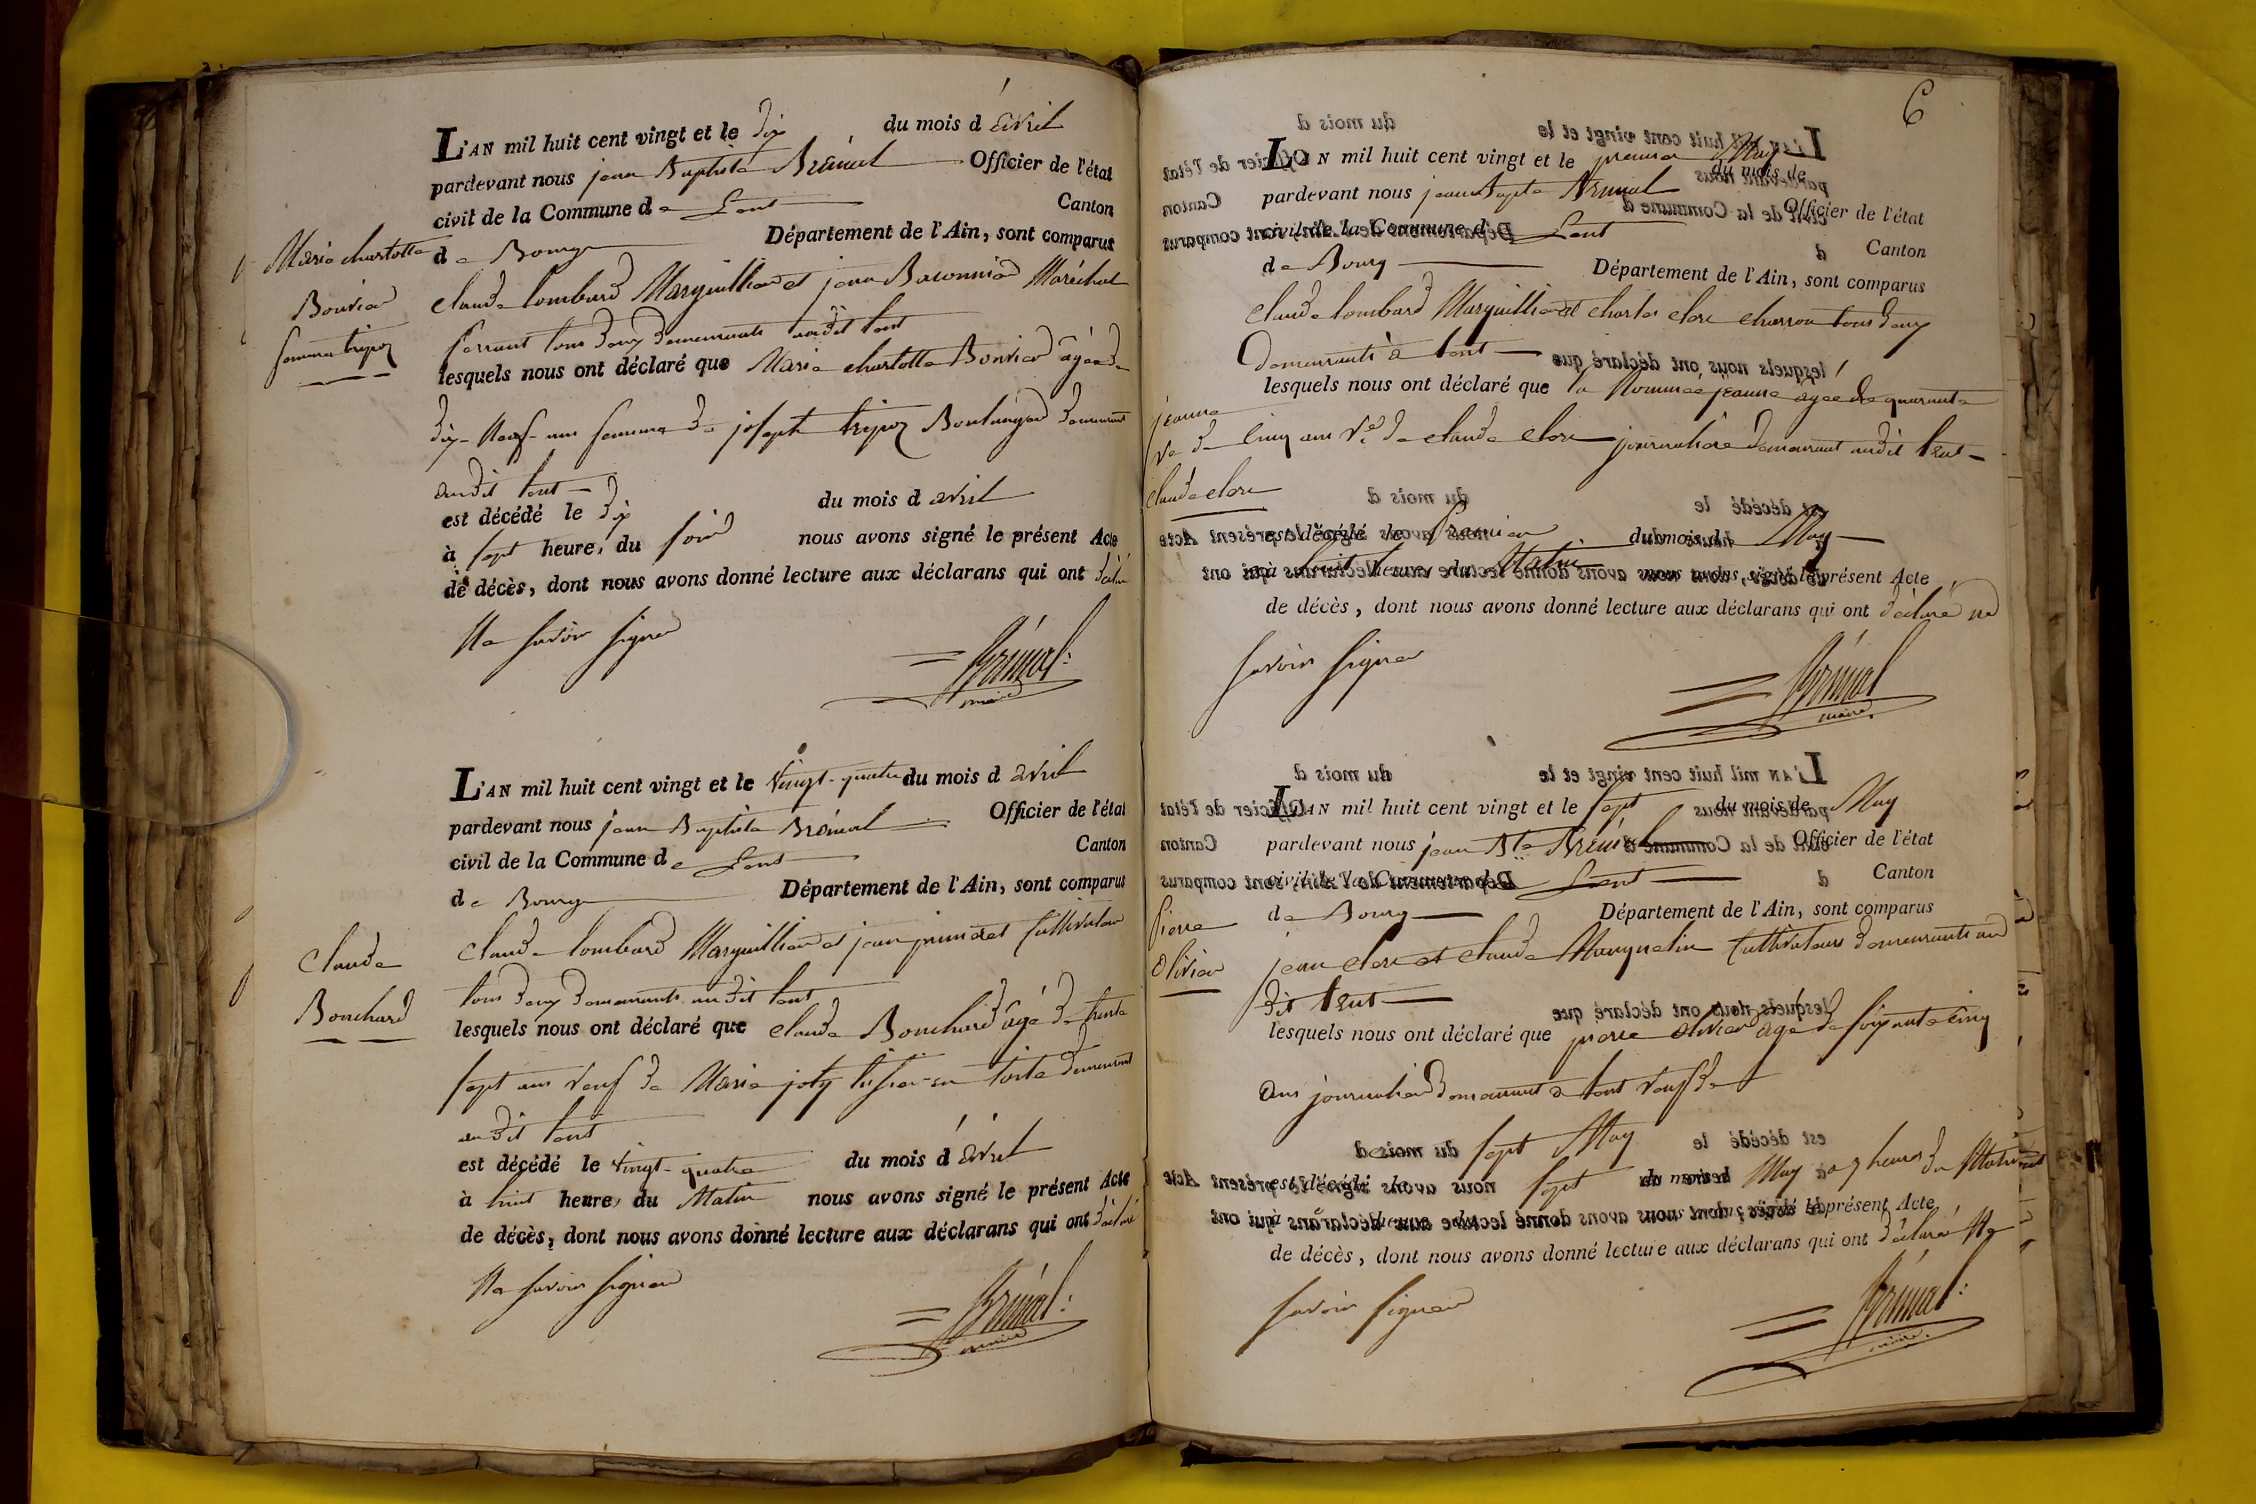 L'AN mil huit cent vingt et le dix du mois d'avril
pardevant nous jean Baptiste Brémal Officier de l'état
civil de la Commune de Lent Canton
de Bourg Département de l'Ain, sont comparus
Claude Lombard Marguillier et jean Maréchal
ferrant tous deux demeurants audit Lent
lesquels nous ont déclaré que Marie charlotte Bouvier âgée de
dix-Neuf ans femme de joseph tripoz Boulanger demeurant
audit Lent
est décédé le dix du mois d avril
à sept heures du soir nous avons signé le présent Acte
de décès, dont nous avons donné lecture aux déclarans qui ont déclaré
Ne savoir signer
Brémal
maire
Marie charlotte
Bouvier
femme tripoz
L'AN mil huit cent vingt et le Vingt-quatre du mois d avril
pardevant nous jean Baptiste Brémal Officier de l'état
civil de la Commune de Lent Canton
de Bourg Département de l'Ain, sont comparus
Claude Lombard Marguillier et jean Cultivateur
tous deux demeurants audit Lent
lesquels nous ont déclaré que Claude Bouchard âgé de trente
sept ans veuf de Marie joly tissier en toile demeurant
audit Lent
est décédé le Vingt-quatre du mois d'avril
à huit heures du Matin nous avons signé le présent Acte
de décès, dont nous avons donné lecture aux déclarans qui ont déclaré
Ne savoir signer
Brémal
maire
Claude
Bouchard
6
L'AN mil huit cent vingt et le premier du mois de May
pardevant nous jean Bapte Brémal Officier de l'état
civil de la Commune de Lent Canton
de Bourg Département de l'Ain, sont comparus
Claude Lombard Marguillier et charles clerc charron tous deux
demeurants à Lent
lesquels nous ont déclaré que la Nommée jeanne âgée de quarante
Cinq ans Ve de claude clerc journalière demeurant audit Lent
est décédé le Premier du mois de May
à huit heures du Matin nous avons signé le présent Acte
de décès, dont nous avons donné lecture aux déclarans qui ont déclaré ne
savoir signer
Brémal
maire.
jeanne
Ve de
claude clerc
L'AN mil huit cent vingt et le sept du mois de May
pardevant nous jean Bte Brémal Officier de l'état
civil de la Commune de Lent Canton
de Bourg Département de l'Ain, sont comparus
jean clerc et claude Cultivateurs demeurants au
dit Lent
lesquels nous ont déclaré que pierre olivier âgé de soixante cinq
ans journalier demeurant à Lent veuf de
sept May
est décédé le sept du mois de May a 7 heures du Matin
nous avons signé le présent Acte
de décès, dont nous avons donné lecture aux déclarans qui ont déclaré Ne
savoir signer
Brémal
maire.
Pierre
Olivier